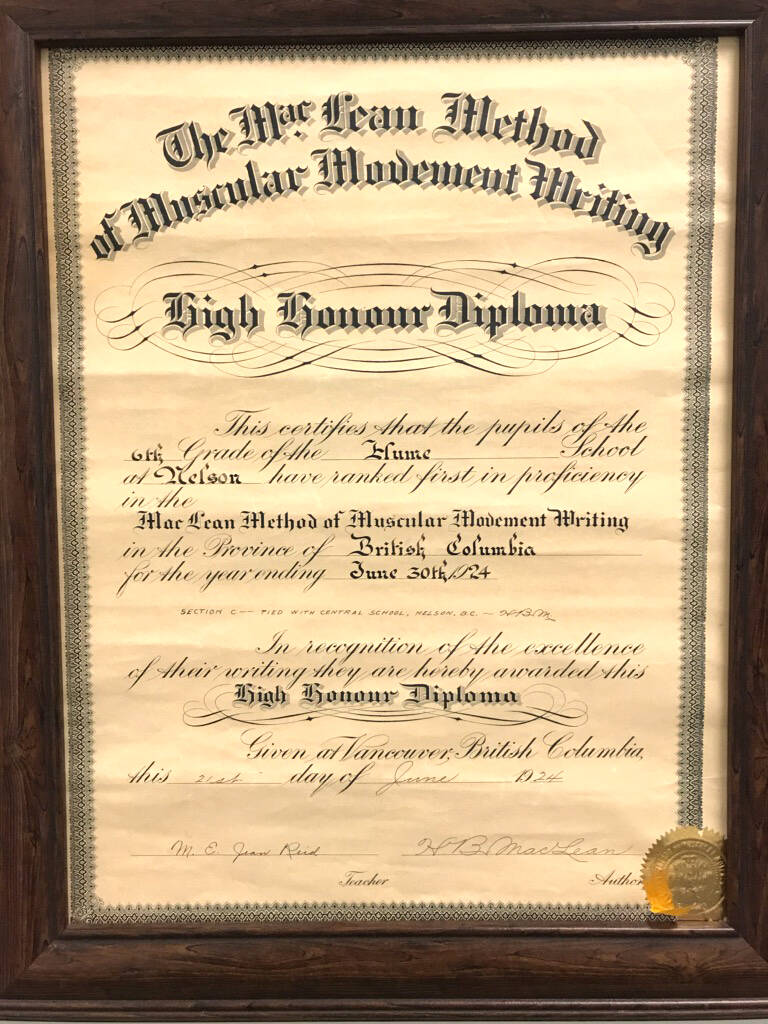 The Mac Lean Method
of Muscular Movement Writing
High Honour Diploma
This certifies that the pupils of the
6th Grade of the Hume School
at Nelson have ranked first in proficiency
in the
Mac Lean Method of Muscular Movement Writing
in the Province of British Columbia
for the year ending June 30th, 1924
SECTION C — TIED WITH CENTRAL SCHOOL, NELSON, B.C. — H.B.M.
In recognition of the excellence
of their writing they are hereby awarded this
High Honour Diploma
Given at Vancouver, British Columbia,
this 21st day of June 1924
M. E. Jean Reid H B MacLean
Teacher Author